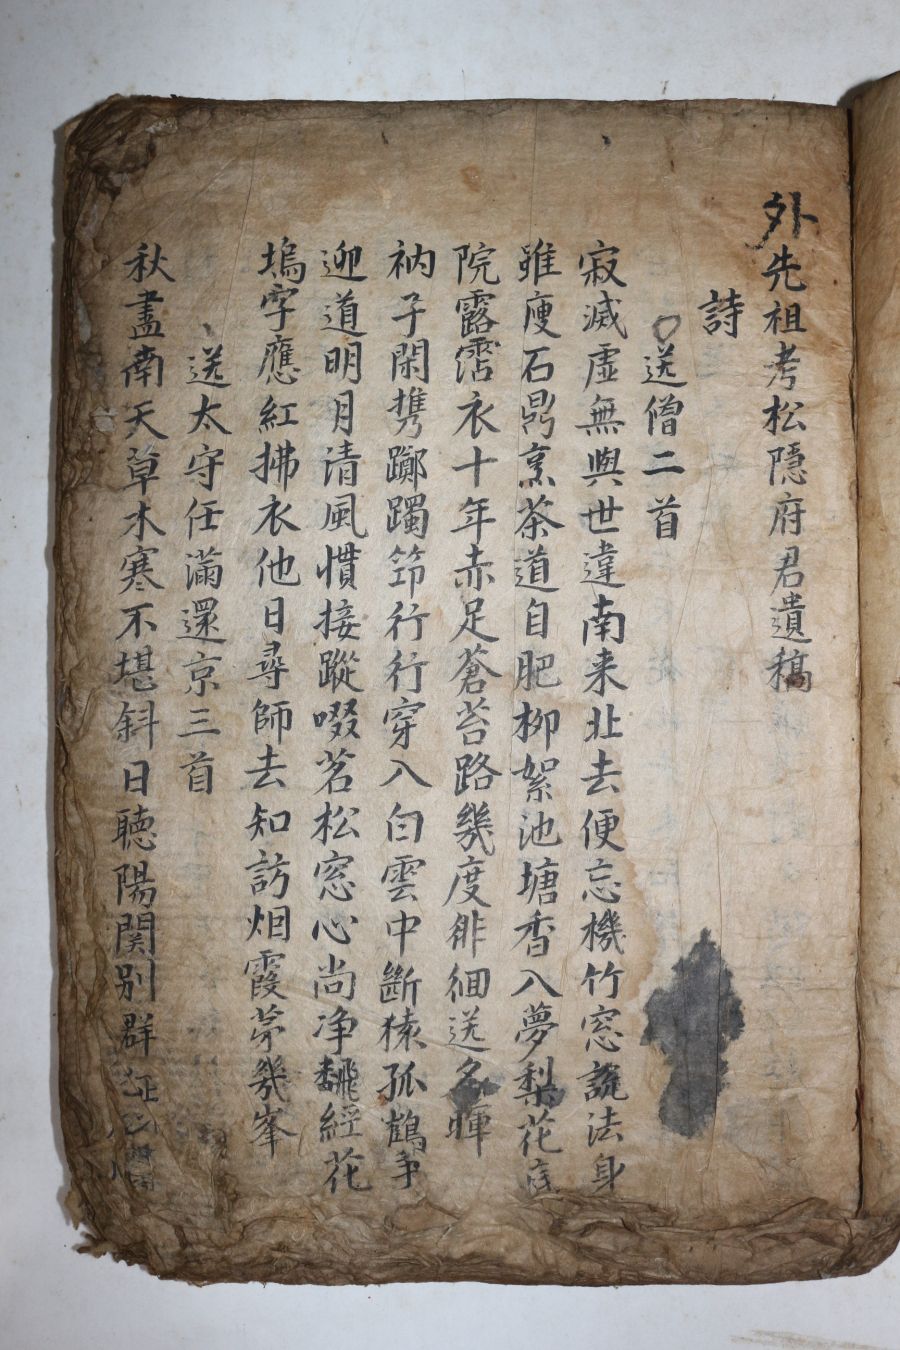 外先祖考松隱府君遺稿
詩
送僧二首
寂滅虛無與世違南来北去便忘機竹窓說法身
雖瘦石鼎烹茶道自肥柳絮池塘香入夢梨花
院露霑衣十年赤足蒼苔路幾度徘徊送名暉
衲子閑携躑躅笻行行穿入白雲中斷猿孤鶴爭
迎道明月清風慣接蹤啜茗松窓心尚净飜經花
塢字應紅拂衣他日尋師去知訪烟霞第幾峯
送太守任滿還京三首
秋盡南天草木寒不堪斜日聽陽関別群